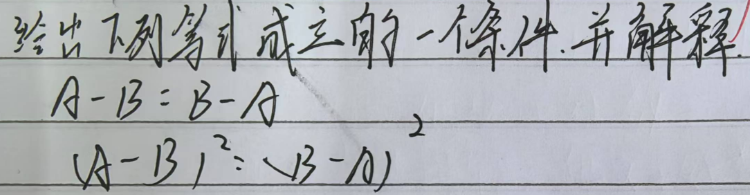 给出下列等式成立的一个条件.并解释.
A-B=B-A
(A-B)²=(B-A)²